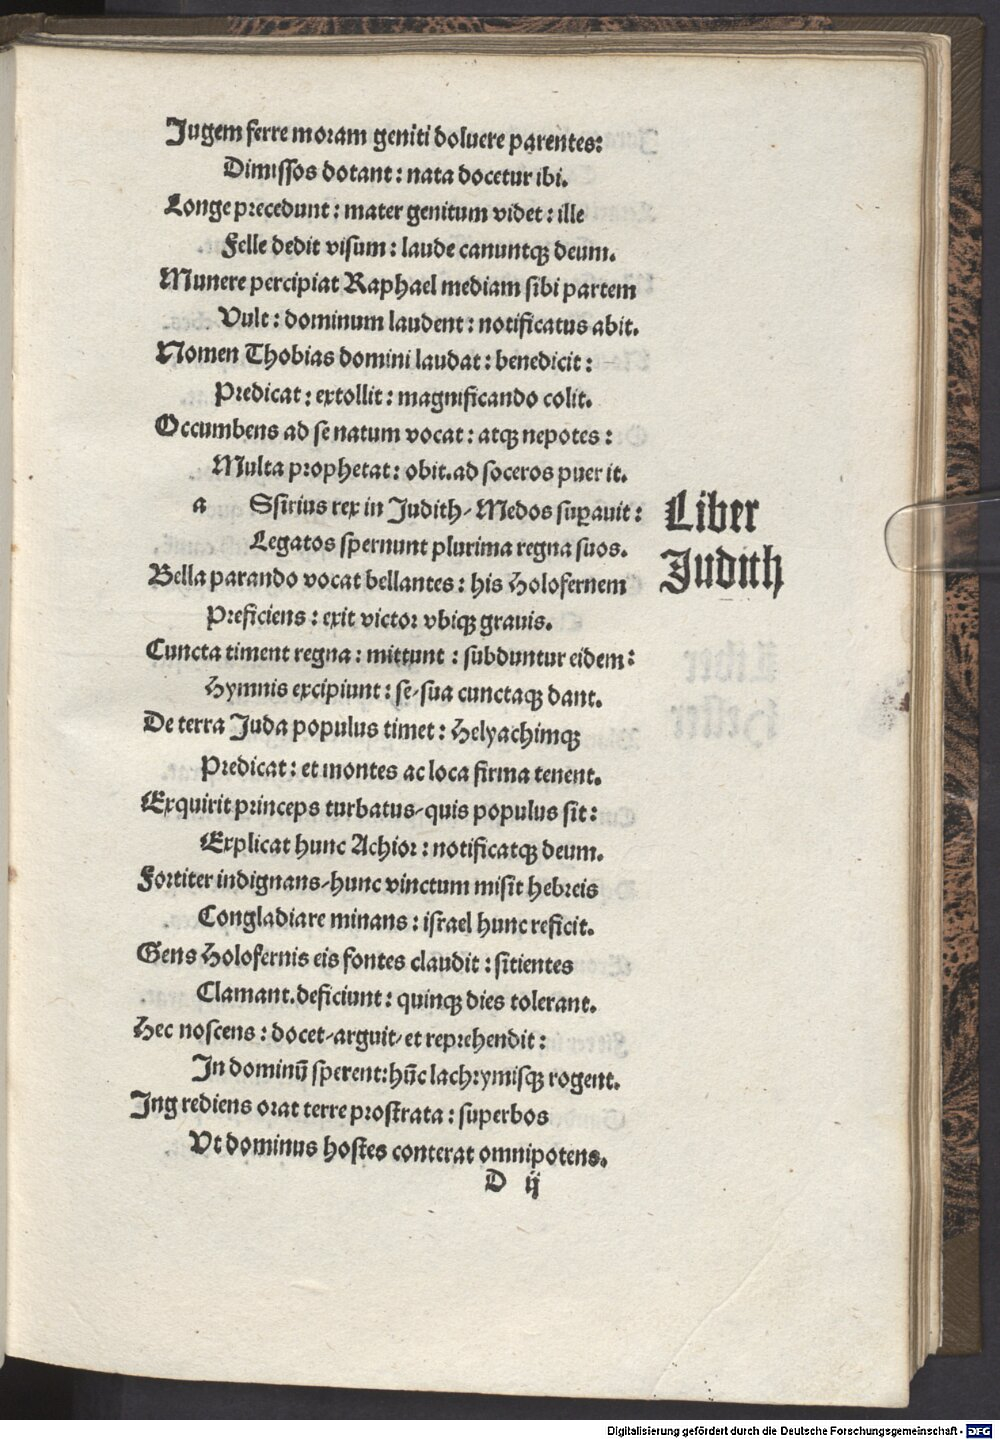 Jugem ferre moram geniti doluere parentes:
Dimissos dotant: nata docetur ibi.
Longe precedunt: mater genitum videt: ille
Felle dedit visum: laude canuntqꝫ deum.
Munere percipiat Raphael mediam sibi partem
Vult: dominum laudent: notificatus abit.
Nomen Thobias domini laudat: benedicit:
Predicat: extollit: magnificando colit.
Occumbens ad se natum vocat: atqꝫ nepotes:
Multa prophetat: obit. ad soceros puer it.
a Ssirius rex in Judith / Medos suꝑauit:
Liber
Judith
Legatos spernunt plurima regna suos.
Bella parando vocat bellantes: his Holofernem
Preficiens: exit victor vbiqꝫ grauis.
Cuncta timent regna: mittunt: subduntur eidem:
Hymnis excipiunt: se / sua cunctaqꝫ dant.
De terra Juda populus timet: Helyachimqꝫ
Predicat: et montes ac loca firma tenent.
Exquirit princeps turbatus / quis populus sit:
Explicat hunc Achior: notificatqꝫ deum.
Fortiter indignans / hunc vinctum misit hebreis
Congladiare minans: israel hunc reficit.
Gens Holofernis eis fontes claudit: sitientes
Clamant. deficiunt: quinqꝫ dies tolerant.
Hec noscens: docet / arguit / et reprehendit:
In dominū sperent: hūc lachrymisqꝫ rogent.
Ing rediens orat terre prostrata: superbos
Vt dominus hostes conterat omnipotens.
D ij
Digitalisierung gefördert durch die Deutsche Forschungsgemeinschaft - DFG